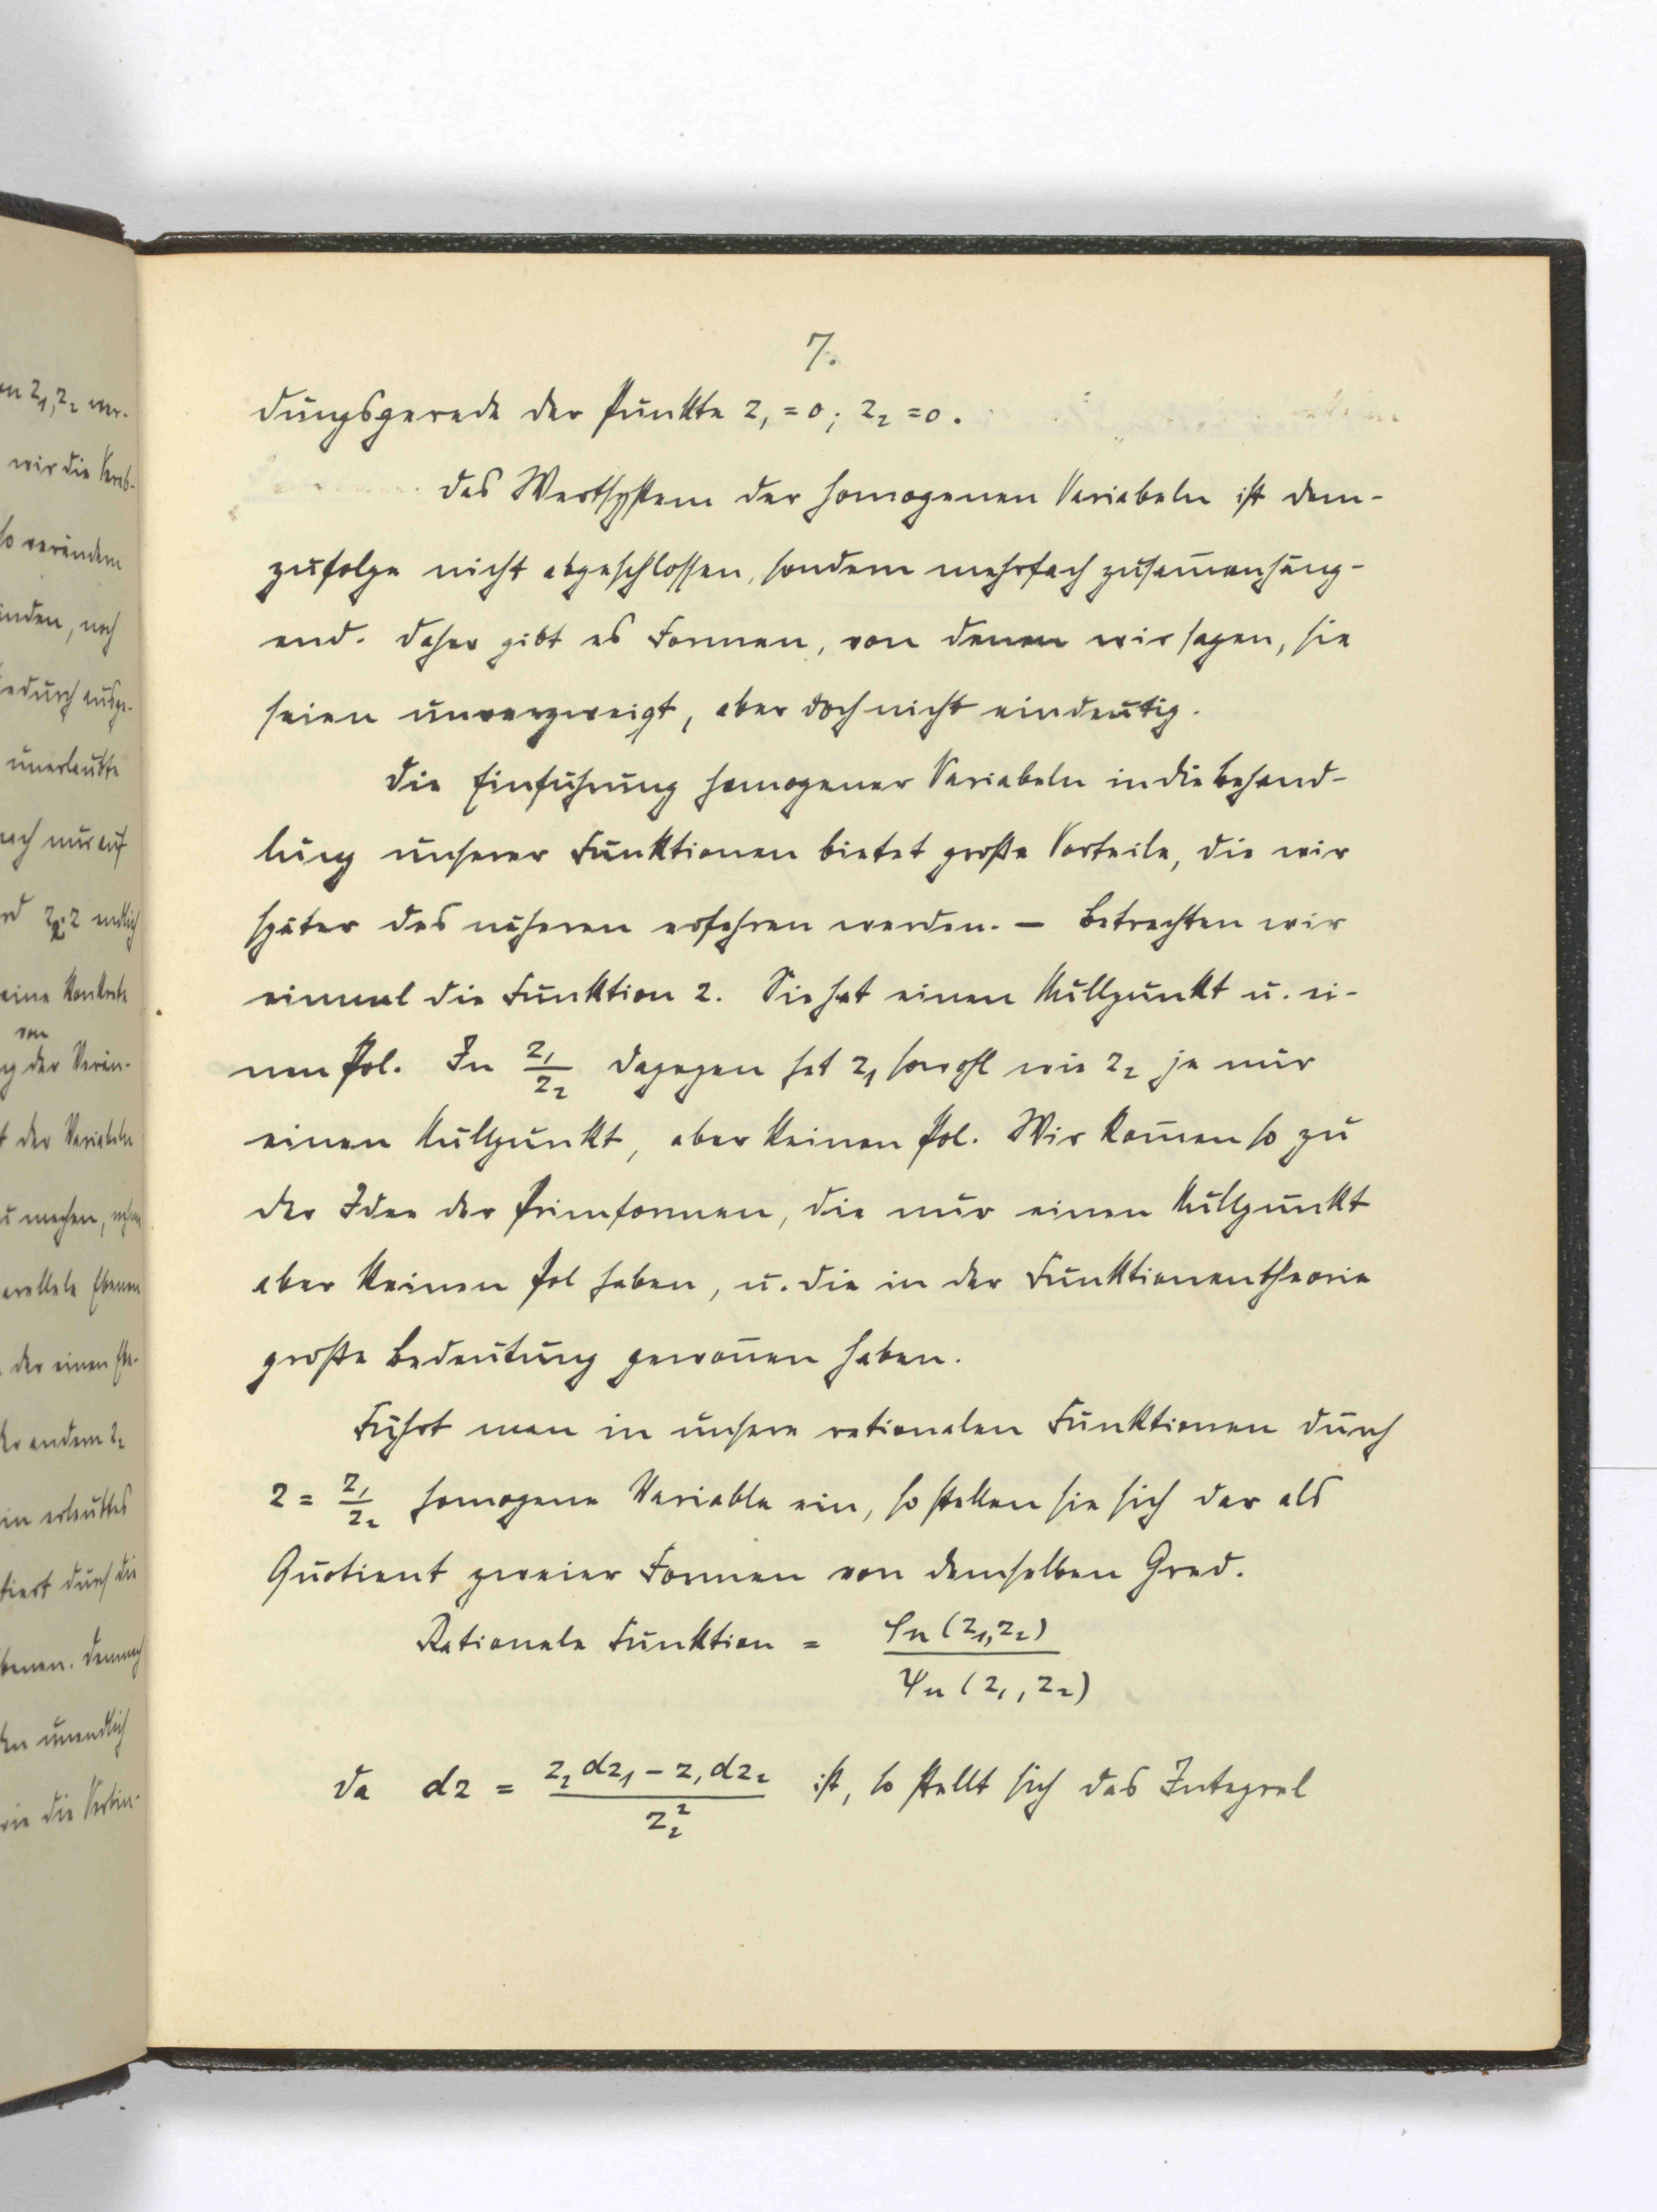 7.
dungsgerade der Punkte z₁ = 0; z₂ = 0.
Das Wertsystem der homogenen Variabeln ist dem-
zufolge nicht abgeschlossen, sondern mehrfach zusam̅enhäng-
end. Daher gibt es Formen, von denen wir sagen, sie
seien unverzweigt, aber doch nicht eindeutig.
Die Einführung homogener Variabeln in die Behand-
lung unserer Funktionen bietet große Vorteile, die wir
später des näheren erfahren werden. — Betrachten wir
einmal die Funktion z. Sie hat einen Nullpunkt u. ei-
nen Pol. In z₁/z₂ dagegen hat z₁ sowohl wie z₂ je nur
einen Nullpunkt, aber keinen Pol. Wir kom̅en so zu
der Idee der Primformen, die nur einen Nullpunkt
aber keinen Pol haben, u. die in der Funktionentheorie
große Bedeutung gewon̅en haben.
Führt man in unsere rationalen Funktionen durch
z = z₁/z₂ homogene Variable ein, so stellen sie sich dar als
Quotient zweier Formen von demselben Grad.
Rationale Funktion = φₙ(z₁,z₂)/ψₙ(z₁,z₂)
Da dz = (z₂dz₁ − z₁dz₂)/z₂² ist, so stellt sich das Integral